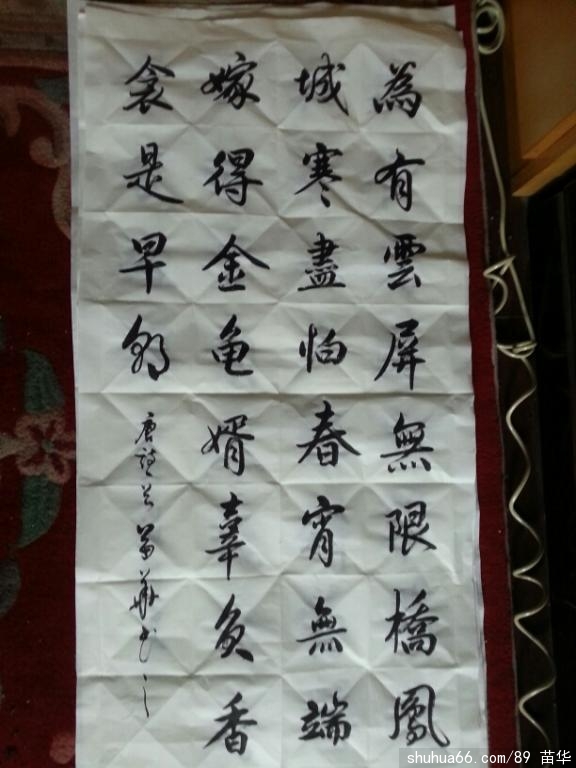 為有雲屏無限橋鳳
城寒盡怕春宵無端
嫁得金龟婿辜負香
衾是早朝
唐詩一首 苗華书之
shuhua66.com/89 苗华